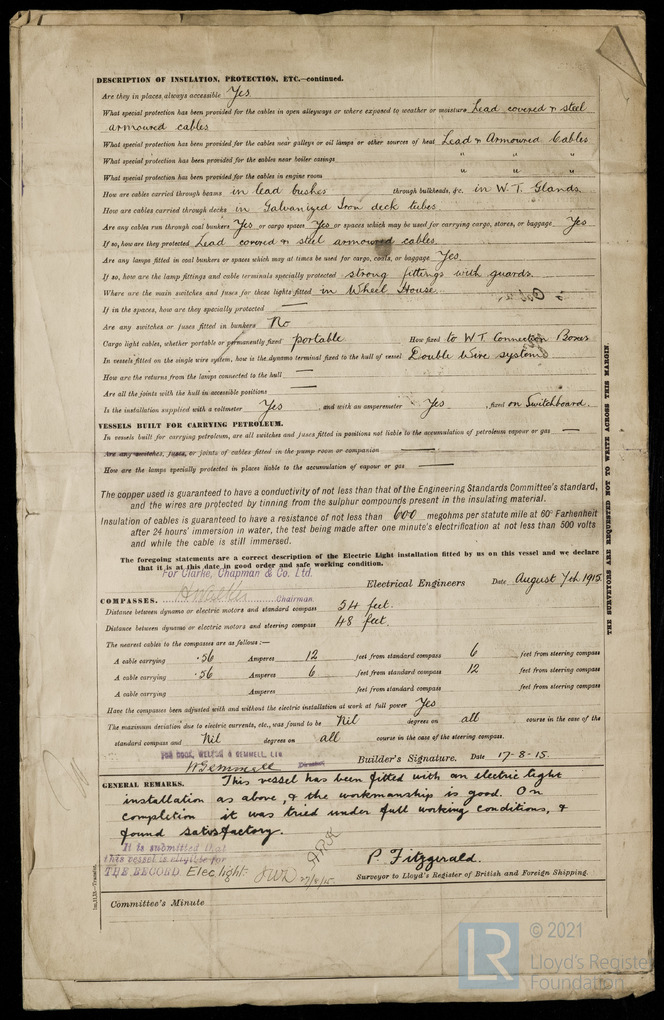 DESCRIPTION OF INSULATION, PROTECTION, ETC.—continued.
Are they in places always accessible Yes
What special protection has been provided for the cables in open alleyways or where exposed to weather or moisture Lead covered & steel
armoured cables
What special protection has been provided for the cables near galleys or oil lamps or other sources of heat Lead & Armoured Cables
What special protection has been provided for the cables near boiler casings " " "
What special protection has been provided for the cables in engine room " " "
How are cables carried through beams in lead bushes through bulkheads, &c. in W.T. Glands.
How are cables carried through decks in Galvanized Iron deck tubes.
Are any cables run through coal bunkers Yes or cargo spaces Yes or spaces which may be used for carrying cargo, stores, or baggage Yes
If so, how are they protected Lead covered & steel armoured cables.
Are any lamps fitted in coal bunkers or spaces which may at times be used for cargo, coals, or baggage Yes.
If so, how are the lamp fittings and cable terminals specially protected strong fittings with guards.
Where are the main switches and fuses for these lights fitted in Wheel House.
If in the spaces, how are they specially protected —
Are any switches or fuses fitted in bunkers No
Cargo light cables, whether portable or permanently fixed portable How fixed to W T Connection Boxes
In vessels fitted on the single wire system, how is the dynamo terminal fixed to the hull of vessel Double Wire system
How are the returns from the lamps connected to the hull —
Are all the joints with the hull in accessible positions —
Is the installation supplied with a voltmeter Yes , and with an amperemeter Yes , fixed on Switchboard.
VESSELS BUILT FOR CARRYING PETROLEUM.
In vessels built for carrying petroleum, are all switches and fuses fitted in positions not liable to the accumulation of petroleum vapour or gas —
Are any switches, fuses, or joints of cables fitted in the pump room or companion —
How are the lamps specially protected in places liable to the accumulation of vapour or gas —
The copper used is guaranteed to have a conductivity of not less than that of the Engineering Standards Committee's standard,
and the wires are protected by tinning from the sulphur compounds present in the insulating material.
Insulation of cables is guaranteed to have a resistance of not less than 600 megohms per statute mile at 60° Farhenheit
after 24 hours' immersion in water, the test being made after one minute's electrification at not less than 500 volts
and while the cable is still immersed.
The foregoing statements are a correct description of the Electric Light installation fitted by us on this vessel and we declare
that it is at this date in good order and safe working condition.
For Clarke, Chapman & Co. Ltd.
Chairman. Electrical Engineers Date August 7th 1915.
COMPASSES.
Distance between dynamo or electric motors and standard compass 54 feet.
Distance between dynamo or electric motors and steering compass 48 feet.
The nearest cables to the compasses are as follows:—
A cable carrying .56 Amperes 12 feet from standard compass 6 feet from steering compass
A cable carrying .56 Amperes 6 feet from standard compass 12 feet from steering compass
A cable carrying Amperes feet from standard compass feet from steering compass
Have the compasses been adjusted with and without the electric installation at work at full power Yes
The maximum deviation due to electric currents, etc., was found to be Nil degrees on all course in the case of the
standard compass and Nil degrees on all course in the case of the steering compass.
FOR COOK, WELTON & GEMMELL, LTD
W Gemmell Director Builder's Signature. Date 17-8-15.
GENERAL REMARKS. This vessel has been fitted with an electric light
installation as above, & the workmanship is good. On
completion it was tried under full working conditions, &
found satisfactory.
It is submitted that
this vessel is eligible for
THE RECORD. Elec light:
27/8/15
P. Fitzgerald.
Surveyor to Lloyd's Register of British and Foreign Shipping.
Committee's Minute
THE SURVEYORS ARE REQUESTED NOT TO WRITE ACROSS THIS MARGIN.
LR
© 2021
Lloyd's Register
Foundation